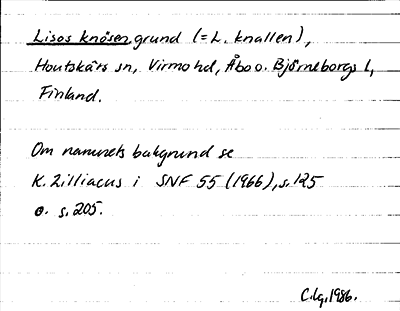 Lisos knösen, grund (= L. knallen),
Houtskärs sn, Virmo hd, Åbo o. Björneborgs l,
Finland.
Om namnets bakgrund se
K. Zilliacus i SNF 55 (1966), s. 125
o. s. 205.
C. Lg, 1986.